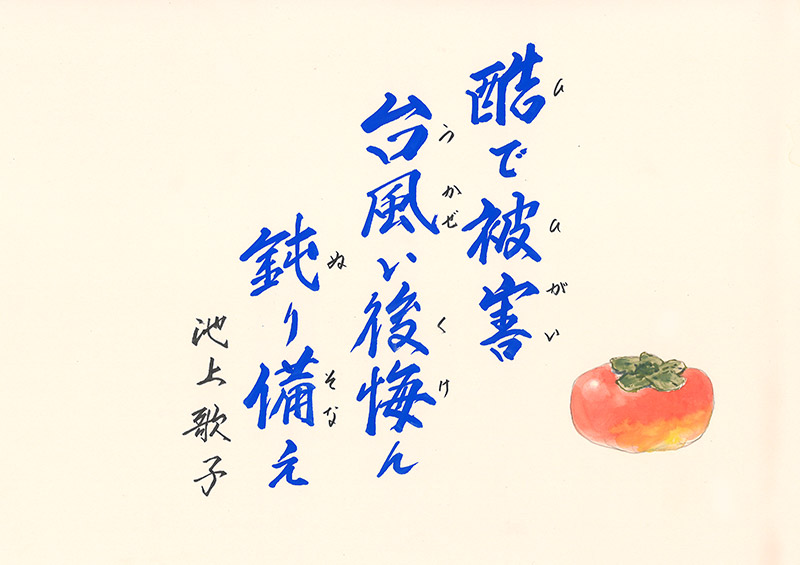 酷で被害
ひ ひがい
台風い後悔ん
うかぜ くけ
鈍り備え
ぬ そな
池上歌子